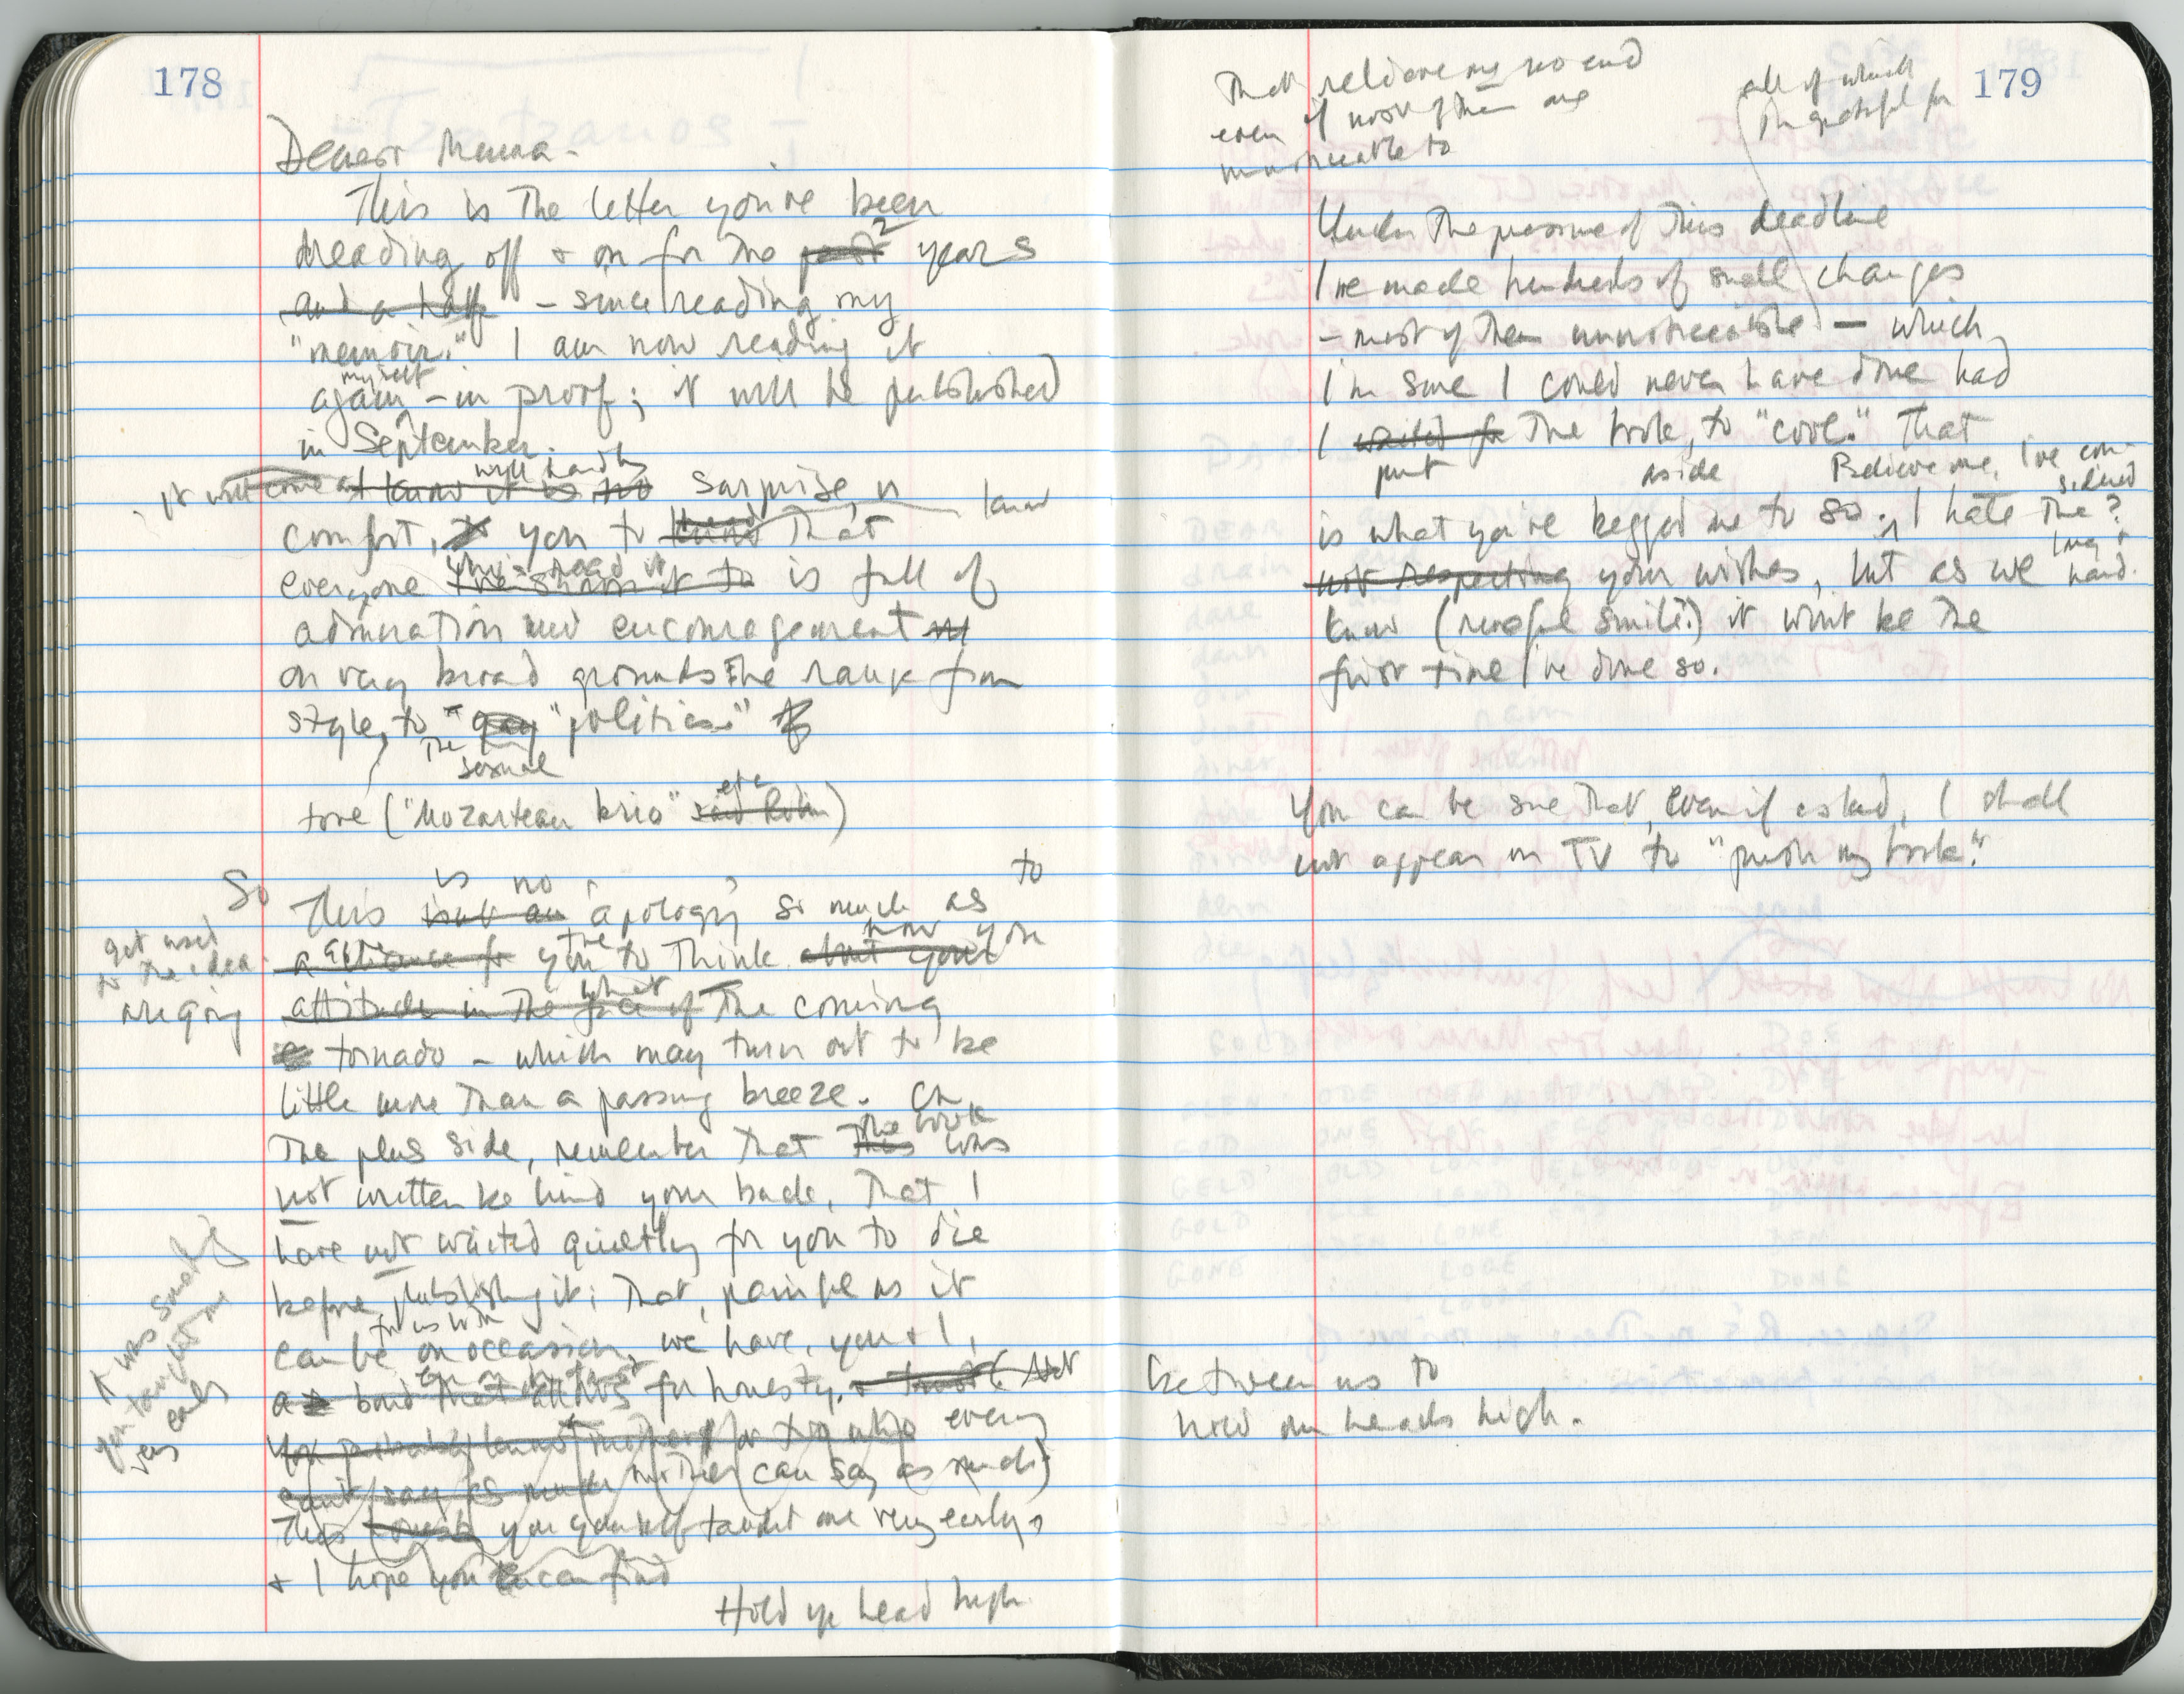 178
Dearest Mama -
This is the letter you've been
dreading off & on for the past 2 years
and a half - since reading my
"memoir." I am now reading it
again myself - in proof; it will be published
in September.
it will come as I know it is no will hardly surprise, or
comfort, you to know that
everyone who's read it I've shown it to is full of
admiration and encouragement
on very broad grounds. The range from
style, to the "gay sexual "politics"
tone ("Mozartean brio" etc said Robin)
So This is no isn't an apology so much as to
get used to the idea
a you to think how you about your
are going
attitude in the face of what the coming
tornado - which may turn out to be
little more than a passing breeze. On
the plus side, remember that this the book was
not written behind your back, that I
have not waited quietly for you to die
before publishing it; that, painful as it
can be for us both on occasion, we have, you & I,
a bond for honesty.
every
can't say as much mother can say as much)
This you yourself taught me very early,
& I hope you can find
Hold yr head high
It was something
you taught me
very early
179
That relieve my no end
even if most of them are
unnoticeable to
all of which
I'm grateful for
Under the pressure of this deadline
I've made hundreds of small changes
- most of them unnoticeable - which
I'm sure I could never have done had
I waited for put the book, to "cool." aside That
Believe me, I've considered
long & hard.
is what you've begged me to do. I hate the?
not respecting your wishes, but as we
know (rueful smile!) it won't be the
first time I've done so.
You can be sure that, even if asked, I shall
not appear on TV to "push my book."
between us to
hold our heads high.